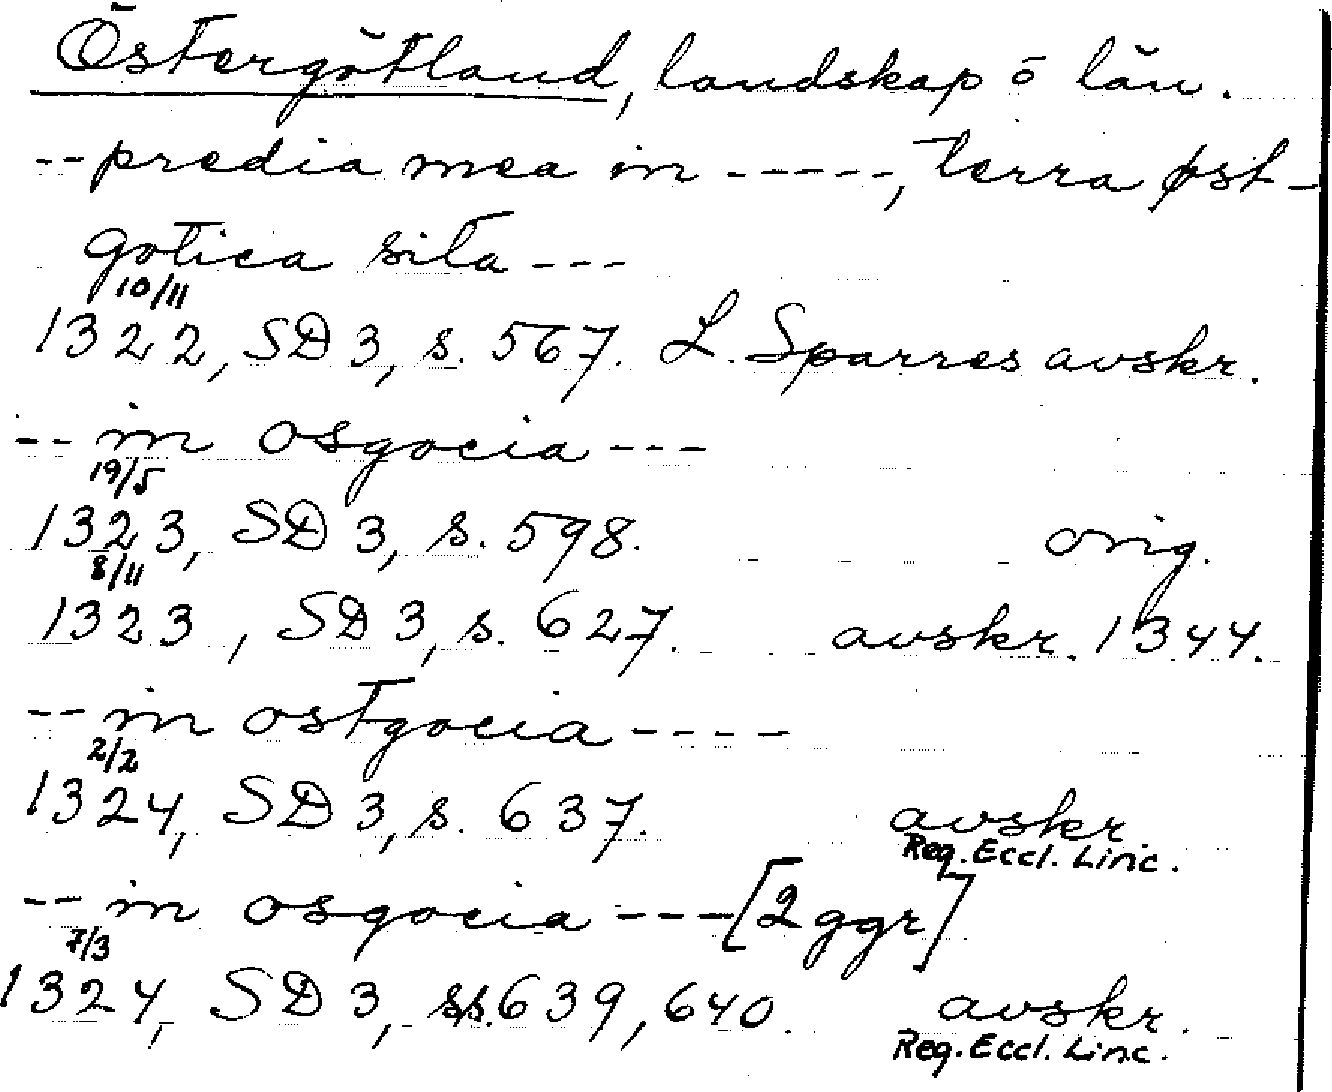 Östergötland, landskap o län.
--predia mea in -----, terra øst-
gotica sita ---
10/11
1322, SD 3, s. 567. L. Sparres avskr.
-- in osgocia ---
19/5
1323, SD 3, s. 598. orig.
8/11
1323, SD 3, s. 627. avskr. 1344.
-- in ostgocia ----
2/2
1324, SD 3, s. 637. avskr.
Reg. Eccl. Linc.
-- in osgocia --- [2 ggr]
7/3
1324, SD 3, ss. 639, 640. avskr.
Reg. Eccl. Linc.